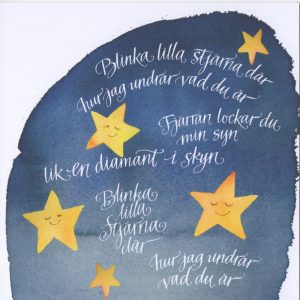 Blinka lilla stjärna där
hur jag undrar vad du är
Fjärran lockar du
min syn
lik en diamant i skyn
Blinka
lilla
Stjärna
där
hur jag undrar
vad du är